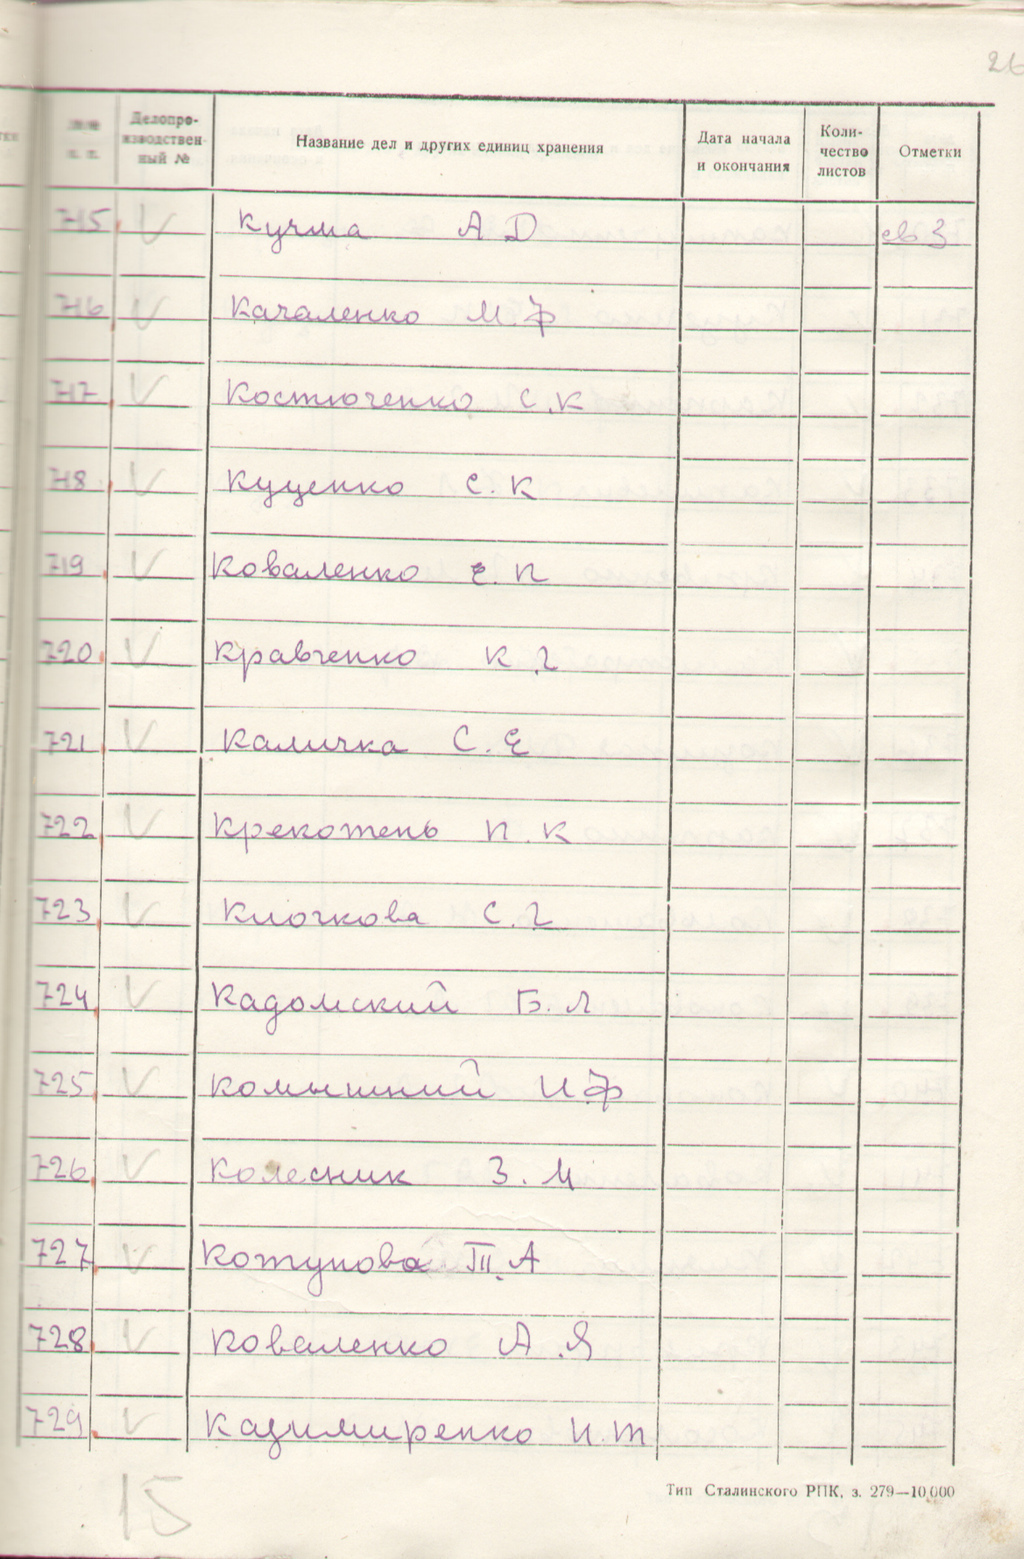 26
Делопро-
изводствен-
ный №
п. п.
Название дел и других единиц хранения
Дата начала
и окончания
Коли-
чество
листов
Отметки
715 V Кучма А Д св 3
716 V Качаленко М.Ф
717 V Костюченко С.К
718 V Куценко С.К
719 V Коваленко Е.П
720 V Кравченко К.Г
721 V Каличка С.Е
722 V Крекотень П.К
723 V Клочкова С.Г
724 V Кадомский Б.Л
725 V Комышний И.Ф
726 V Колесник З.М
727 V Котунова Т.А
728 V Коваленко А.Я
729 V Казимиренко И.Т
15
Тип Сталинского РПК, з. 279—10.000